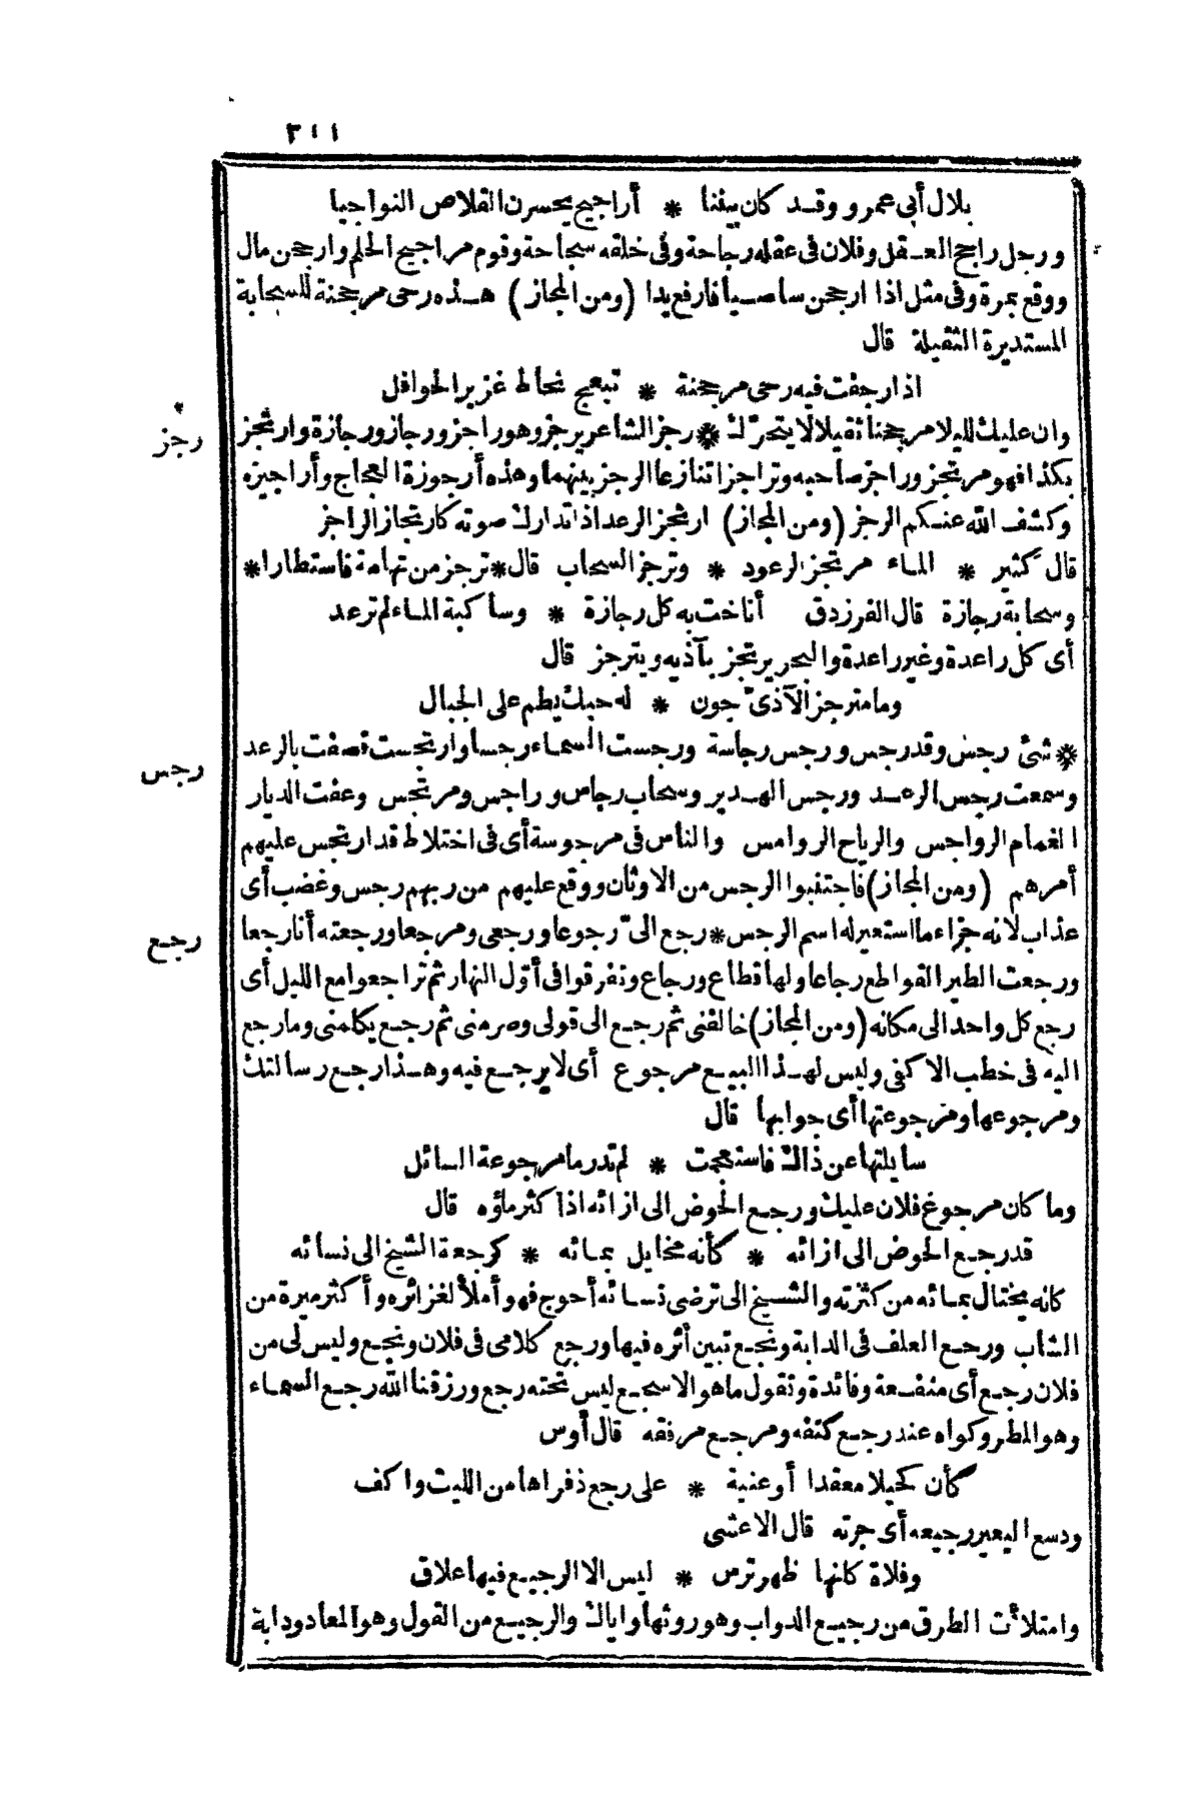 ٢١١
بلال أبى عمرو وقد كان بيننا * أراجيح يحسرن القلاص النواجيا
ورجل راجح العقل وفلان فى عقله رجاحة وفى خلقه سجاحة وقوم مراجيح الحلم وارجحن مال
ووقع بمرة وفى مثل اذا ارجحن ساصيا فارفع يدا (ومن المجاز) هذه رحى مرجحنة للسحابة
المستديرة الثقيلة قال
اذا رجفت فيه رحى مرجحنة * تبعج ثجاط غزير الحوافل
وان عليك لليلا مرجحنا ثقيلا لا يتحرّك * رجز الشاعر يرجز وهو راجز ورجاز ورجازة وارتجز
رجز
بكذا فهو مرتجز وراجز صاحبه وتراجزا تنازعا الرجز بينهما وهذه أرجوزة العجاج وأراجيزه
وكشف الله عنكم الرجز (ومن المجاز) ارتجز الرعد اذا تدارك صوته كارتجاز الراجز
قال كثير * الماء مرتجز الرعود * وترجز السحاب قال * ترجز من تهامة فاستطارا *
وسحابة رجازة قال الفرزدق أناخت به كل رجازة * وساكبة الماء لم ترعد
أى كل راعدة وغير راعدة والبحر يرتجز بآذيه ويترجز قال
وما مترجز الآذىّ جون * له حبك يطم على الجبال
* شئ رجس وقد رجس ورجس رجاسة ورجست السماء رجسا وارتجست قصفت بالرعد
رجس
وسمعت رجس الرعد ورجس الهدير وسحاب رجاس وراجس ومرتجس وعفت الديار
الغمام الرواجس والرياح الروامس والناس فى مرجوسة أى فى اختلاط قد ارتجس عليهم
أمرهم (ومن المجاز) فاجتنبوا الرجس من الاوثان ووقع عليهم من ربهم رجس وغضب أى
عذاب لانه جزاء ما استعير له اسم الرجس * رجع الىّ رجوعا ورجعى ومرجعا ورجعته أنا رجعا
رجع
ورجعت الطير القواطع رجاعا ولها قطاع ورجاع وتفرقوا فى أوّل النهار ثم تراجعوا مع الليل أى
رجع كل واحد الى مكانه (ومن المجاز) خالفنى ثم رجع الى قولى وصرمنى ثم رجع يكلمنى وما رجع
اليه فى خطب الا كفى وليس لهذا البيع مرجوع أى لا يرجع فيه وهذا رجع رسالتك
ومرجوعها ومرجوعتها أى جوابها قال
سايلتها عن ذاك فاستعجمت * لم تدر ما مرجوعة السائل
وما كان مرجوع فلان عليك ورجع الحوض الى ازائه اذا كثر ماؤه قال
قد رجع الحوض الى ازائه * كأنه مخايل بمائه * كرجعة الشيخ الى نسائه
كانه يختال بمائه من كثرته والشيخ الى ترضى نسائه أحوج فهو أملأ لغزائره وأكثر ميرة من
الشاب ورجع العلف فى الدابة ونجع تبين أثره فيها ورجع كلامى فى فلان ونجع وليس لى من
فلان رجع أى منفعة وفائدة وتقول ما هو الا سجع ليس تحته رجع ورزقنا الله رجع السماء
وهو المطر وكواه عند رجع كتفه ومرجع مرفقه قال أوس
كأن كحيلا معقدا أو عنية * على رجع ذفراها من الليت واكف
ودسع البعير رجيعه أى جرته قال الاعشى
وفلاة كانها ظهر ترس * ليس الا الرجيع فيها علاق
وامتلأت الطرق من رجيع الدواب وهو روثها واياك والرجيع من القول وهو المعاد ودابة